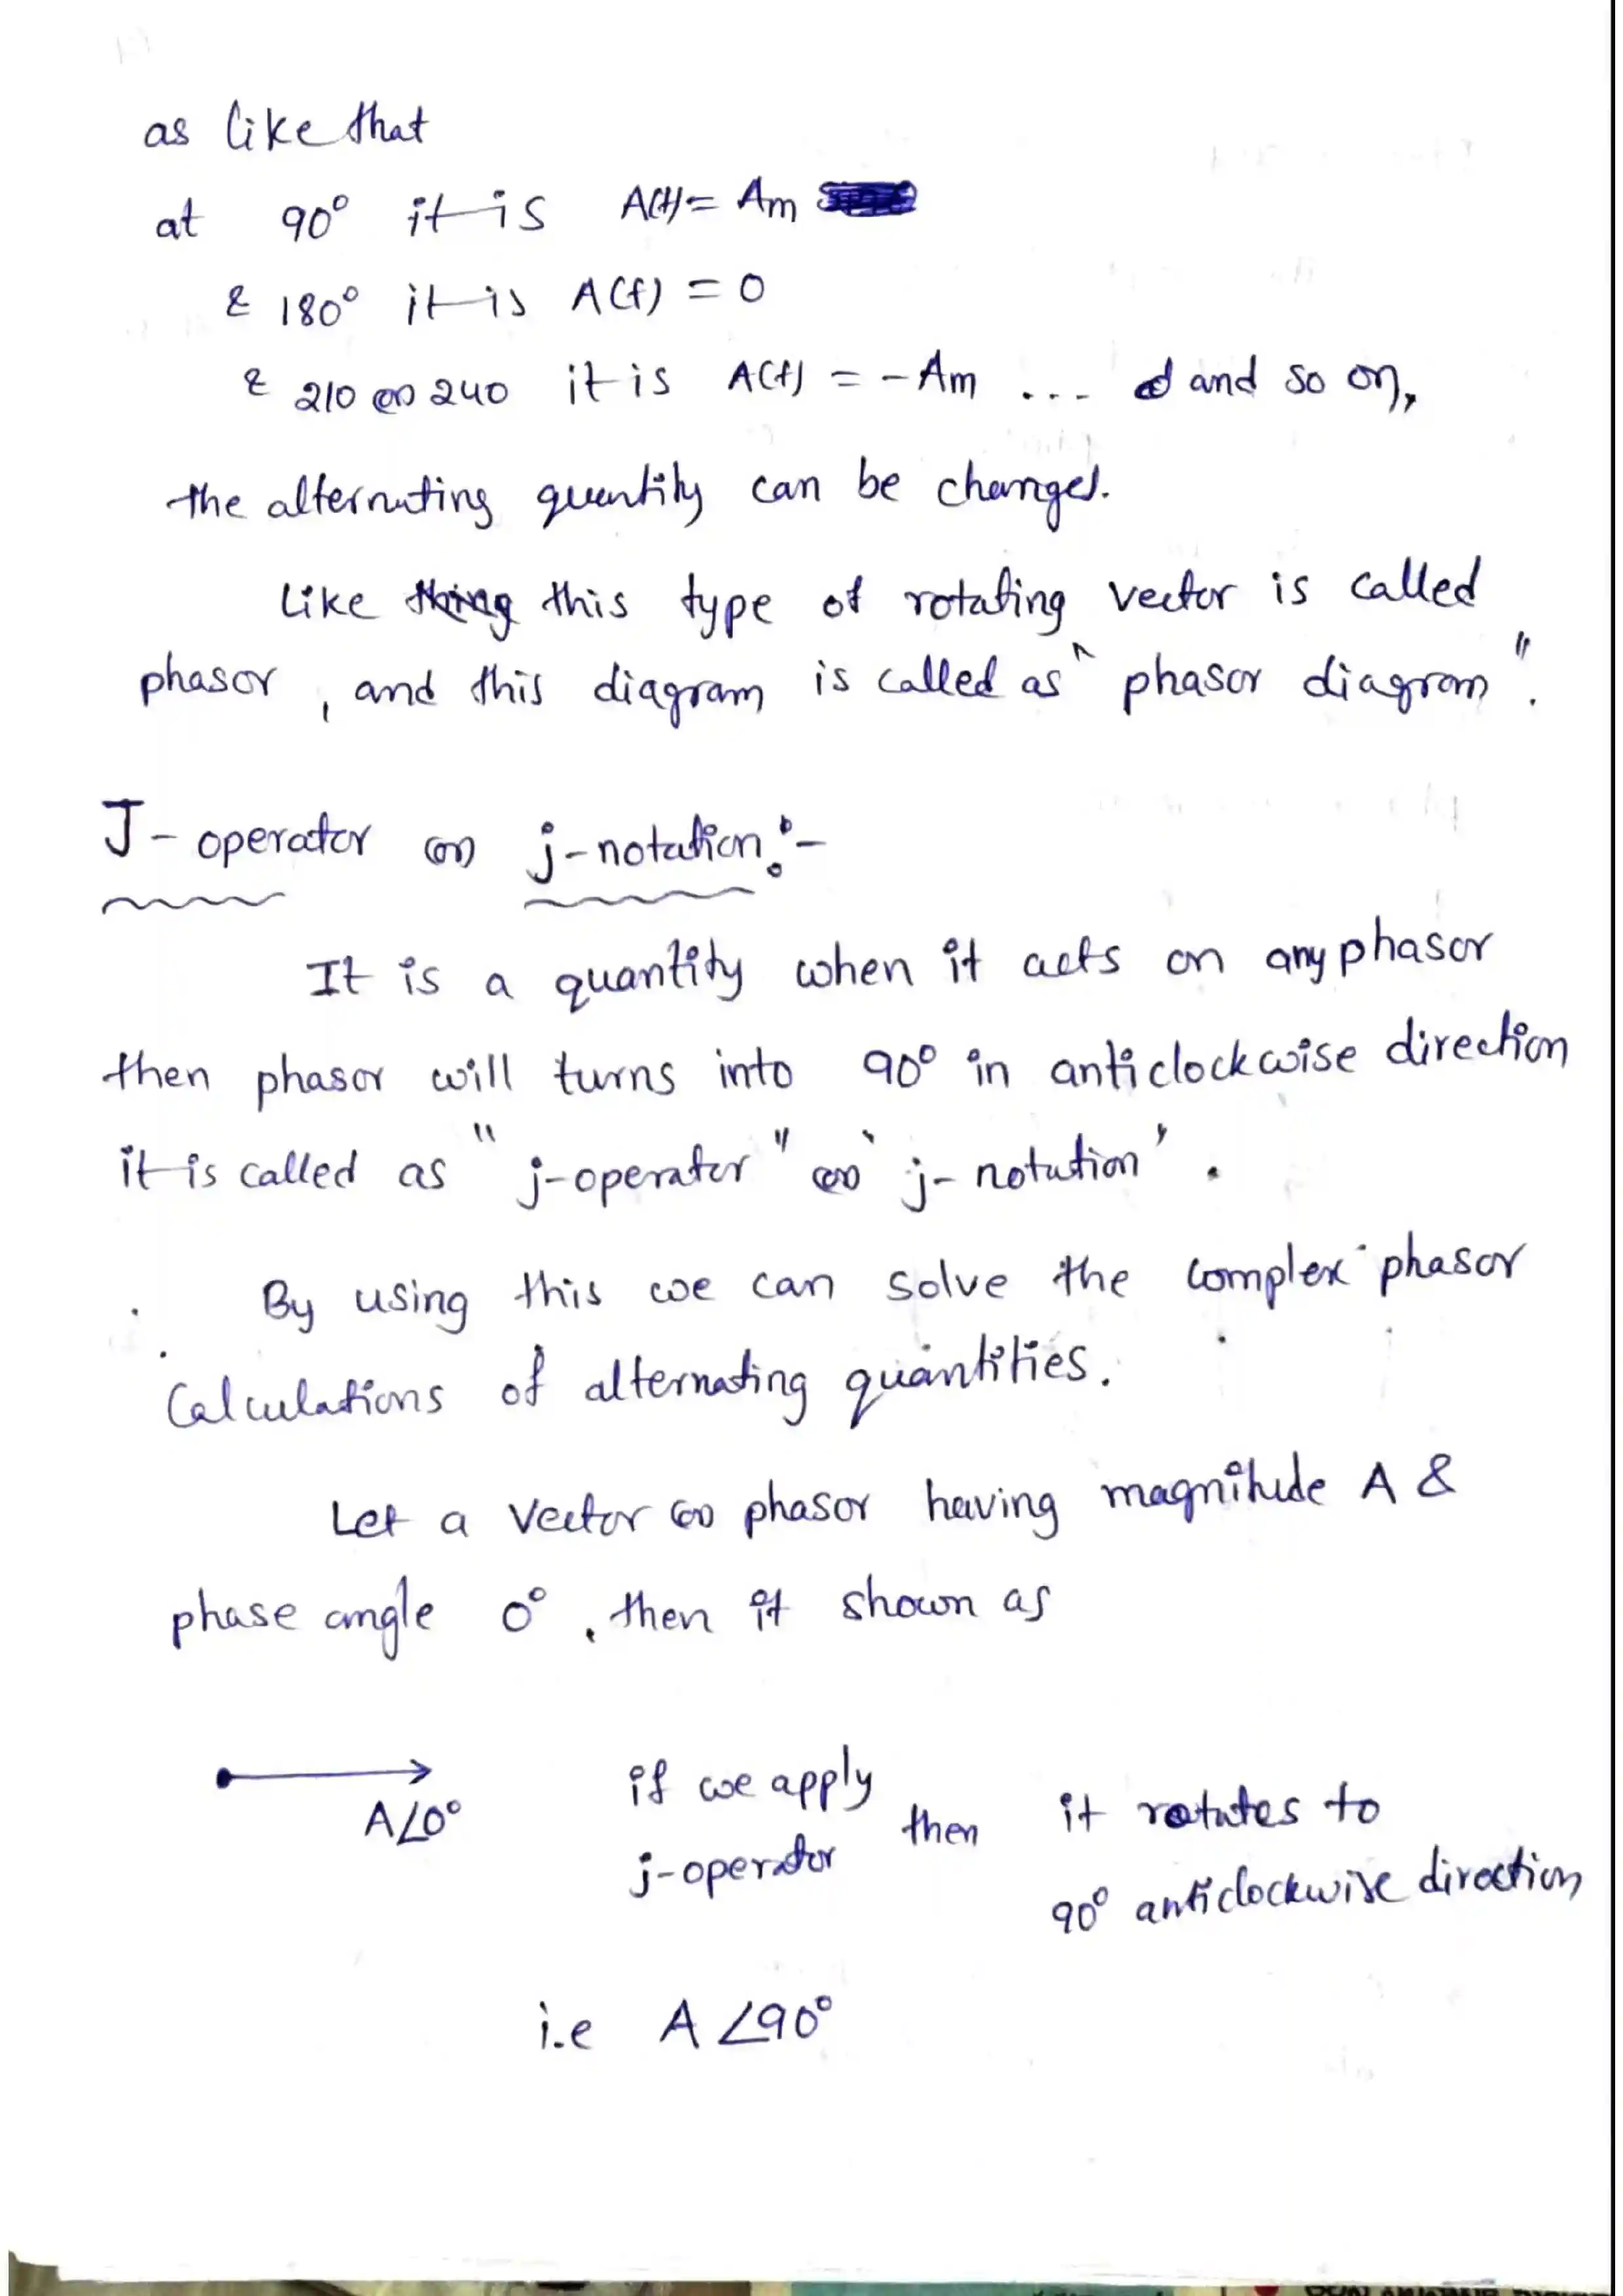 as like that
at 90° it is A(t)= Am
& 180° it is A(t) = 0
& 210 (or) 240 it is A(t) = -Am ... and so on,
the alternating quantity can be changed.
Like this type of rotating vector is called
phasor, and this diagram is called as "phasor diagram".
J-operator (or) j-notation:-
It is a quantity when it acts on any phasor
then phasor will turns into 90° in anticlockwise direction
it is called as "j-operator" (or) 'j-notation'.
By using this we can solve the complex phasor
Calculations of alternating quantities.
Let a Vector (or) phasor having magnitude A &
phase angle 0°, then it shown as
A∠0° if we apply j-operator then it rotates to
90° anticlockwise direction
i.e A ∠90°